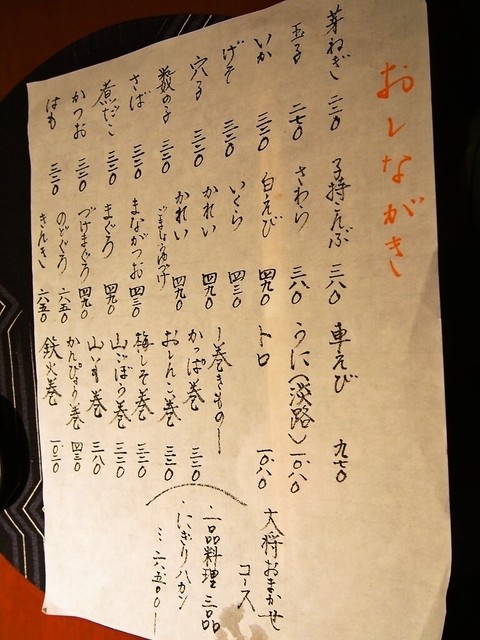 おしながき
芽ねぎ 二二〇
玉子 二七〇
いか 三二〇
げそ 三二〇
穴子 三二〇
数の子 三二〇
さば 三二〇
煮だこ 三二〇
かつお 三二〇
はも 三二〇
子持こんぶ 三八〇
さわら 三八〇
白えび 四九〇
いくら 四三〇
かれい 四九〇
かれい 四九〇
ごましょうゆづけ
まながつお 四三〇
まぐろ 四九〇
づけまぐろ 四九〇
のどぐろ 六五〇
きんき 六五〇
車えび 九七〇
うに(淡路) 一〇八〇
トロ 一〇八〇
ー巻きものー
かっぱ巻 三二〇
おしんこ巻 三二〇
梅しそ巻 三二〇
山ごぼう巻 三二〇
山いも巻 三八〇
かんぴょう巻 四三〇
鉄火巻 一〇三〇
大将おまかせ
コース
一品料理 三品
にぎり八カン